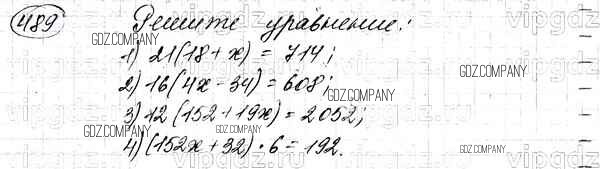 489 Решите уравнение:
1) 21(18+x) = 714;
2) 16(4x - 34) = 608;
3) 12(152 + 19x) = 2052;
4) (152x + 32) · 6 = 192.
GDZ.COMPANY
GDZ.COMPANY
GDZ.COMPANY
GDZ.COMPANY
GDZ.COMPANY
GDZ.COMPANY
vipgdz.ru
vipgdz.ru